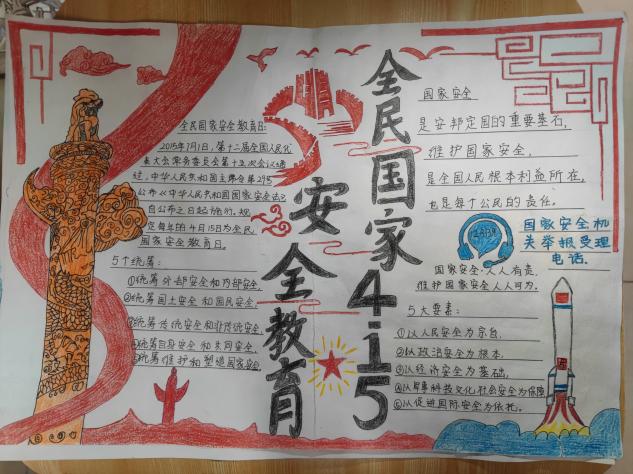 全民国家
安全教育
4.15
全民国家安全教育日:
2015年7月1日,第十二届全国人民代
表大会常务委员会第十五次会议通
过,中华人民共和国主席令第29号
公布《中华人民共和国国家安全法》
自公布之日起施行.规
定每年的4月15日为全民
国家安全教育日。
5个统筹:
①统筹外部安全和内部安全,
②统筹国土安全和国民安全,
③统筹传统安全和非传统安全,
④统筹自身安全和共同安全,
⑤统筹维护和塑造国家安全,
国家安全
是安邦定国的重要基石,
维护国家安全,
是全国人民根本利益所在,
也是每个公民的责任。
12339
国家安全机
关举报受理
电话.
国家安全,人人有责,
维护国家安全人人可为.
5大要素:
①以人民安全为宗旨.
②以政治安全为根本.
③以经济安全为基础,
④以军事科技文化社会安全为保障
⑤以促进国际安全为依托。